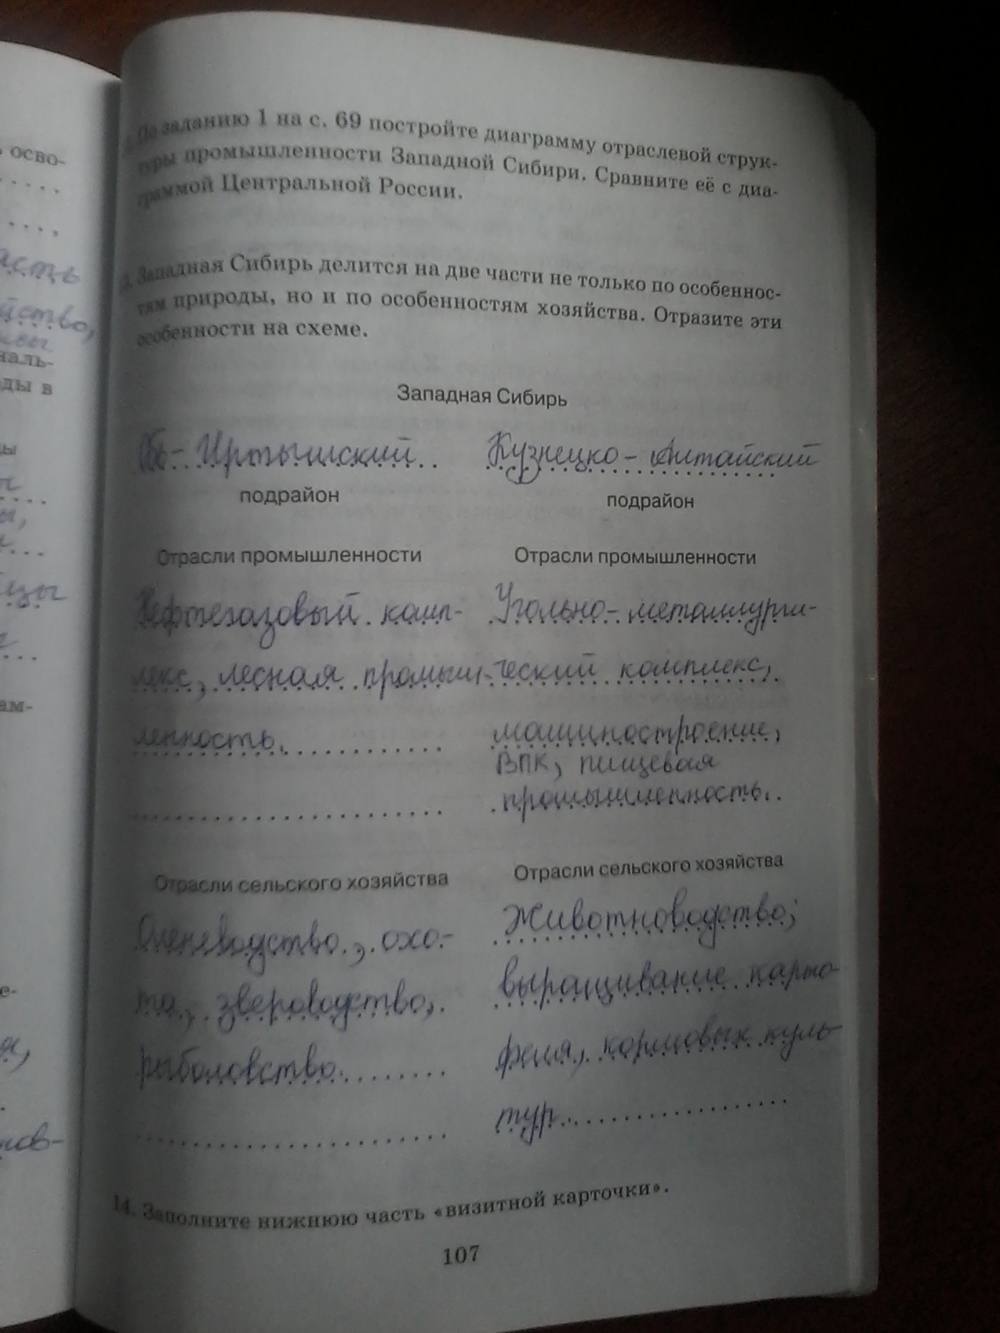 По заданию 1 на с. 69 постройте диаграмму отраслевой струк-
туры промышленности Западной Сибири. Сравните её с диа-
граммой Центральной России.
Западная Сибирь делится на две части не только по особеннос-
тям природы, но и по особенностям хозяйства. Отразите эти
особенности на схеме.
Западная Сибирь
Обь-Иртышский
подрайон
Отрасли промышленности
Нефтегазовый комп-
лекс, лесная промыш-
ленность.
Отрасли сельского хозяйства
Оленеводство, охо-
та, звероводство,
рыболовство.
Кузнецко-Алтайский
подрайон
Отрасли промышленности
Угольно-металлурги-
ческий комплекс,
машиностроение,
ВПК, пищевая
промышленность.
Отрасли сельского хозяйства
Животноводство,
выращивание карто-
феля, кормовых куль-
тур.
14. Заполните нижнюю часть «визитной карточки».
107
осво-
ство,
наль-
ды в